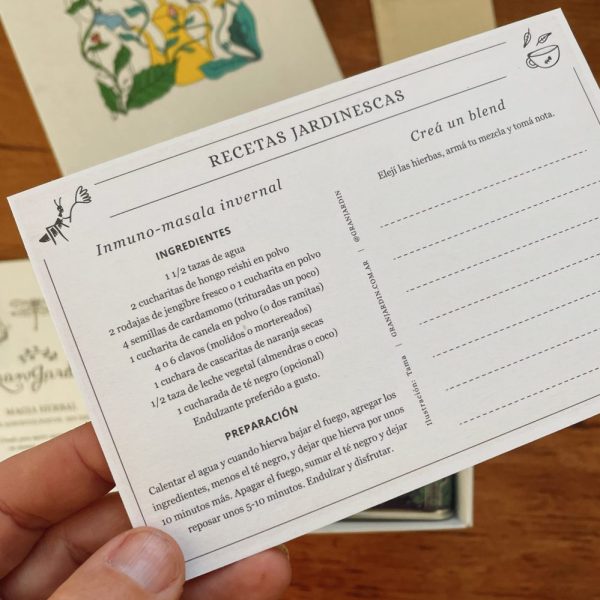 RECETAS JARDINESCAS
Inmuno-masala invernal
INGREDIENTES
1 1/2 tazas de agua
2 cucharitas de hongo reishi en polvo
2 rodajas de jengibre fresco o 1 cucharita en polvo
4 semillas de cardamomo (trituradas un poco)
1 cucharita de canela en polvo (o dos ramitas)
4 o 6 clavos (molidos o mortereados)
1 cuchara de cascaritas de naranja secas
1/2 taza de leche vegetal (almendras o coco)
1 cucharada de té negro (opcional)
Endulzante preferido a gusto.
PREPARACIÓN
Calentar el agua y cuando hierva bajar el fuego, agregar los
ingredientes, menos el té negro, y dejar que hierva por unos
10 minutos más. Apagar el fuego, sumar el té negro y dejar
reposar unos 5-10 minutos. Endulzar y disfrutar.
Ilustración: Tama | GRANJARDIN.COM.AR | @GRANJARDIN
Creá un blend
Elejí las hierbas, armá tu mezcla y tomá nota.
MAGIA HERBAL